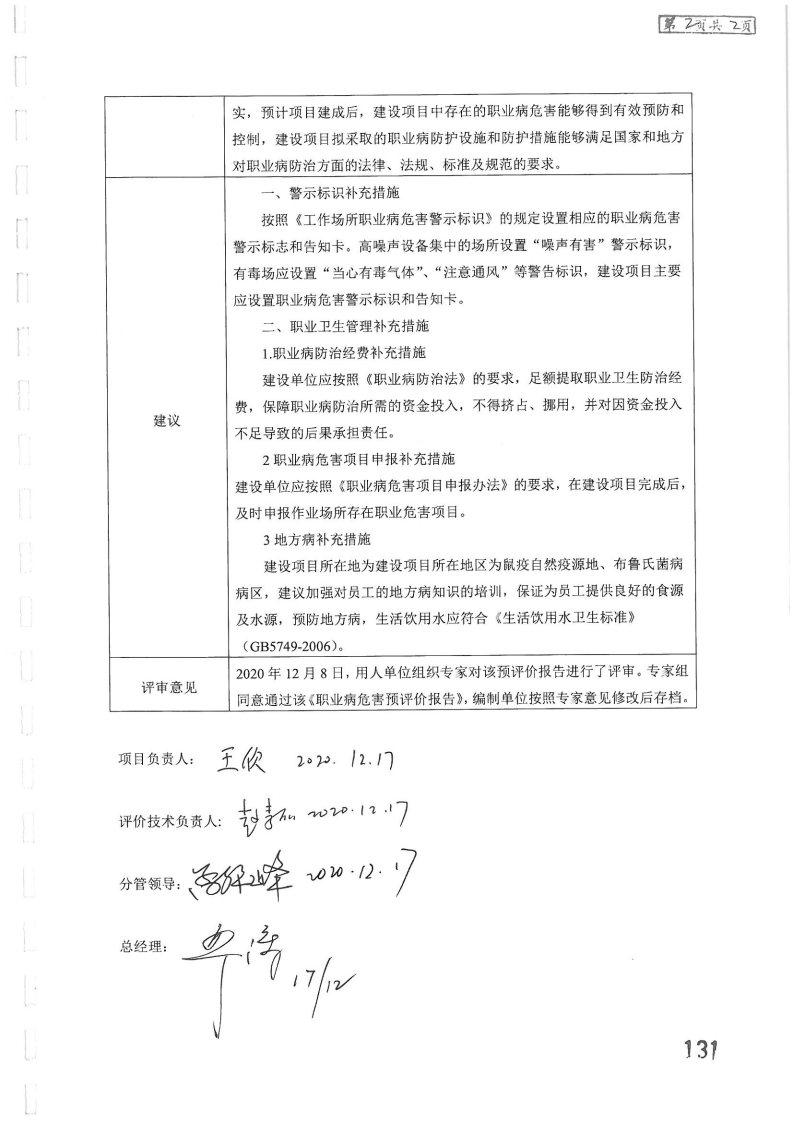 第2页共2页
实，预计项目建成后，建设项目中存在的职业病危害能够得到有效预防和
控制，建设项目拟采取的职业病防护设施和防护措施能够满足国家和地方
对职业病防治方面的法律、法规、标准及规范的要求。
一、警示标识补充措施
按照《工作场所职业病危害警示标识》的规定设置相应的职业病危害
警示标志和告知卡。高噪声设备集中的场所设置“噪声有害”警示标识，
有毒场应设置“当心有毒气体”、“注意通风”等警告标识，建设项目主要
应设置职业病危害警示标识和告知卡。
二、职业卫生管理补充措施
1.职业病防治经费补充措施
建设单位应按照《职业病防治法》的要求，足额提取职业卫生防治经
建议
费，保障职业病防治所需的资金投入，不得挤占、挪用，并对因资金投入
不足导致的后果承担责任。
2 职业病危害项目申报补充措施
建设单位应按照《职业病危害项目申报办法》的要求，在建设项目完成后，
及时申报作业场所存在职业危害项目。
3 地方病补充措施
建设项目所在地为建设项目所在地区为鼠疫自然疫源地、布鲁氏菌病
病区，建议加强对员工的地方病知识的培训，保证为员工提供良好的食源
及水源，预防地方病，生活饮用水应符合《生活饮用水卫生标准》
（GB5749-2006）。
评审意见
2020 年 12 月 8 日，用人单位组织专家对该预评价报告进行了评审。专家组
同意通过该《职业病危害预评价报告》，编制单位按照专家意见修改后存档。
项目负责人： 王欣 2020.12.17
评价技术负责人: 2020.12.17
分管领导: 2020.12.17
总经理： 17/12
131